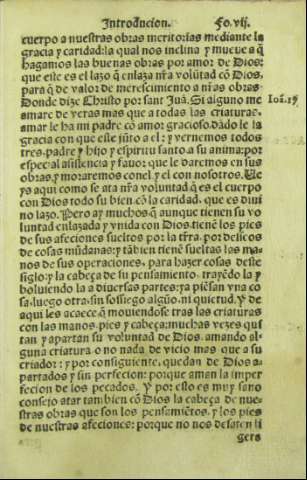 Introducion. Fo. vij.
cuerpo a nuestras obras meritorias mediante la
gracia y caridad: la qual nos inclina y mueue a q̄
hagamos las buenas obras por amor de Dios:
que este es el lazo q̄ enlaza nr̄a volūtad cō Dios,
para q̄ de valor de merescimiento a nr̄as obras
Donde dize Christo por sant Juā. Si alguno me
Ioā. 14
amare de veras mas que a todas las criaturas,
amar le ha mi padre cō amor gracioso, dādo le la
gracia con que este jūto a el: y vernemos todos
tres, padre y hijo y espiritu santo a su anima: por
especial assistencia y fauor que le daremos en sus
obras, y moraremos con el y el con nosotros. Ue
ys aqui como se ata nr̄a voluntad q̄ es el cuerpo
con Dios todo su bien cō la caridad, que es diui
no lazo. Pero ay muchos q̄ aunque tienen su vo
luntad enlazada y vnida con Dios, tienē los pies
de sus afeciones sueltos por la tr̄ra, por desseos
de cosas mūdanas: y tābien tienē sueltas las ma
nos de sus operaciones, para hazer cosas deste
siglo: y la cabeça de su pensamiento, trayēdo la y
boluiendo la a diuersas partes: ya piēsan vna co
sa, luego otra, sin sossiego algūo, ni quietud. Y de
aqui les acaece q̄ mouiendose tras las criaturas
con las manos, pies y cabeça: muchas vezes qui
tan y apartan su voluntad de Dios, amando al
guna criatura o no nada de vicio mas que a su
criador: y por consiguiente, quedan de Dios a-
partados y sin perfecion: porque aman la imper
fecion de los pecados. Y por esto es muy sano
consejo atar tambien cō Dios la cabeça de nue-
stras obras que son los pensamiētos, y los pies
de nuestras afeciones: porque no nos desaten li
gera